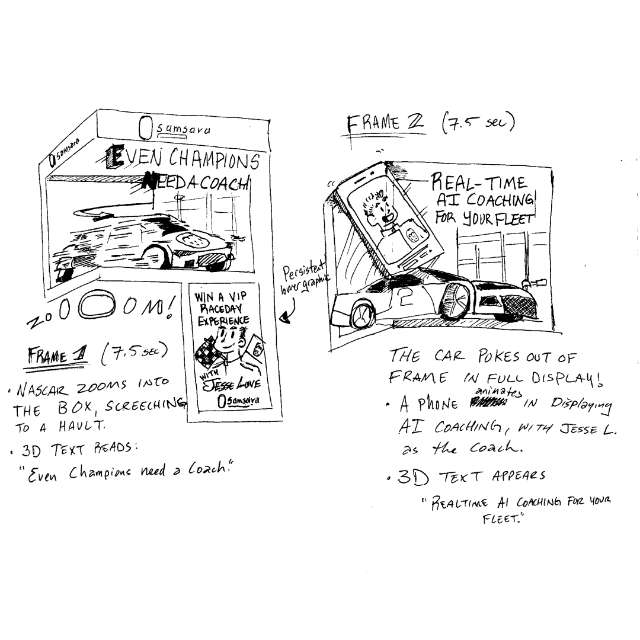 samsara
samsara
EVEN CHAMPIONS
NEED A COACH!
ZOOOOM!
WIN A VIP
RACEDAY
EXPERIENCE
WITH
JESSE LOVE
samsara
Persistent
lower graphic
FRAME 1 (7.5 SEC)
• NASCAR ZOOMS INTO
THE BOX, SCREECHING
TO A HAULT.
• 3D TEXT READS:
"Even Champions need a Coach."
FRAME 2 (7.5 SEC)
REAL-TIME
AI COACHING
FOR YOUR FLEET
2
THE CAR POKES OUT OF
FRAME IN FULL DISPLAY!
• A PHONE animates IN Displaying
AI COACHING, WITH JESSE L.
as the coach.
• 3D TEXT APPEARS
"REALTIME AI COACHING FOR YOUR
FLEET."